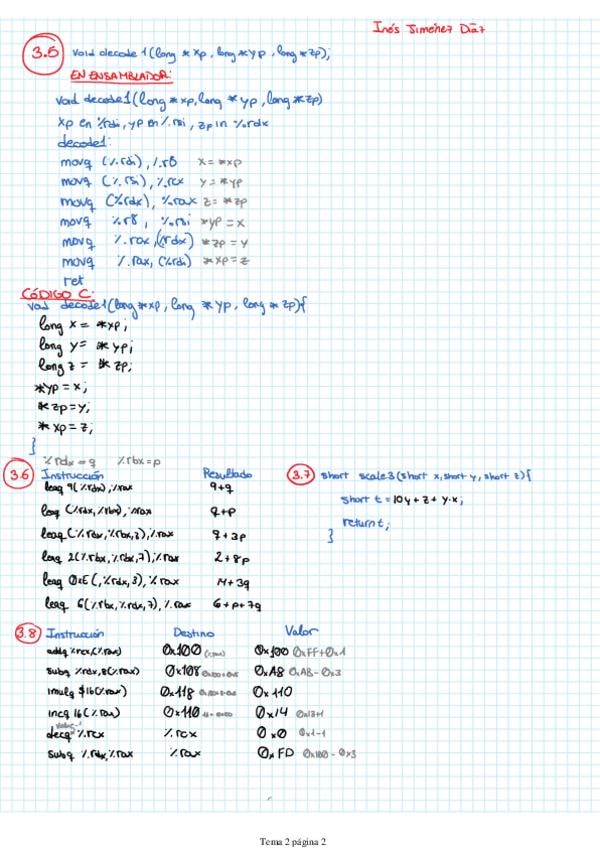 Inés Jiménez Díaz
3.5 void decode1(long *xp, long *yp, long *zp);
EN ENSAMBLADOR:
void decode1(long *xp, long *yp, long *zp)
xp en %rdi, yp en %rsi, zp in %rdx
decode1:
movq (%rdi), %r8 x = *xp
movq (%rsi), %rcx y = *yp
movq (%rdx), %rax z = *zp
movq %r8, %rsi *yp = x
movq %rax, (%rdx) *zp = y
movq %rax, (%rdi) *xp = z
ret
CÓDIGO C:
void decode1(long *xp, long *yp, long *zp){
long x = *xp;
long y = *yp;
long z = *zp;
*yp = x;
*zp = y;
*xp = z;
}
%rdx = q %rbx = p
3.6 Instrucción Resultado
leaq 9(%rdx), %rax 9+q
leaq (%rdx, %rbx), %rax q+p
leaq (%rdx, %rbx, 2), %rax q+2p
leaq 2(%rbx, %rbx, 7), %rax 2+8p
leaq 0xE(, %rdx, 3), %rax 14+3q
leaq 6(%rbx, %rdx, 7), %rax 6+p+7q
3.7 short scale3(short x, short y, short z){
short t = 10y + z + y·x;
return t;
}
3.8 Instrucción Destino Valor
addq %rcx, (%rax) 0x100 (%rax) 0x100 0xFF+0x1
subq %rdx, 8(%rax) 0x108 0xA8 0xAB-0x3
imulq $16(%rax) 0x118 0x110
incq 16(%rax) 0x110 0x14 0x13+1
decq %rcx %rcx 0x0 0x1-1
subq %rdx, %rax %rax 0xFD 0x100-0x3
Tema 2 página 2